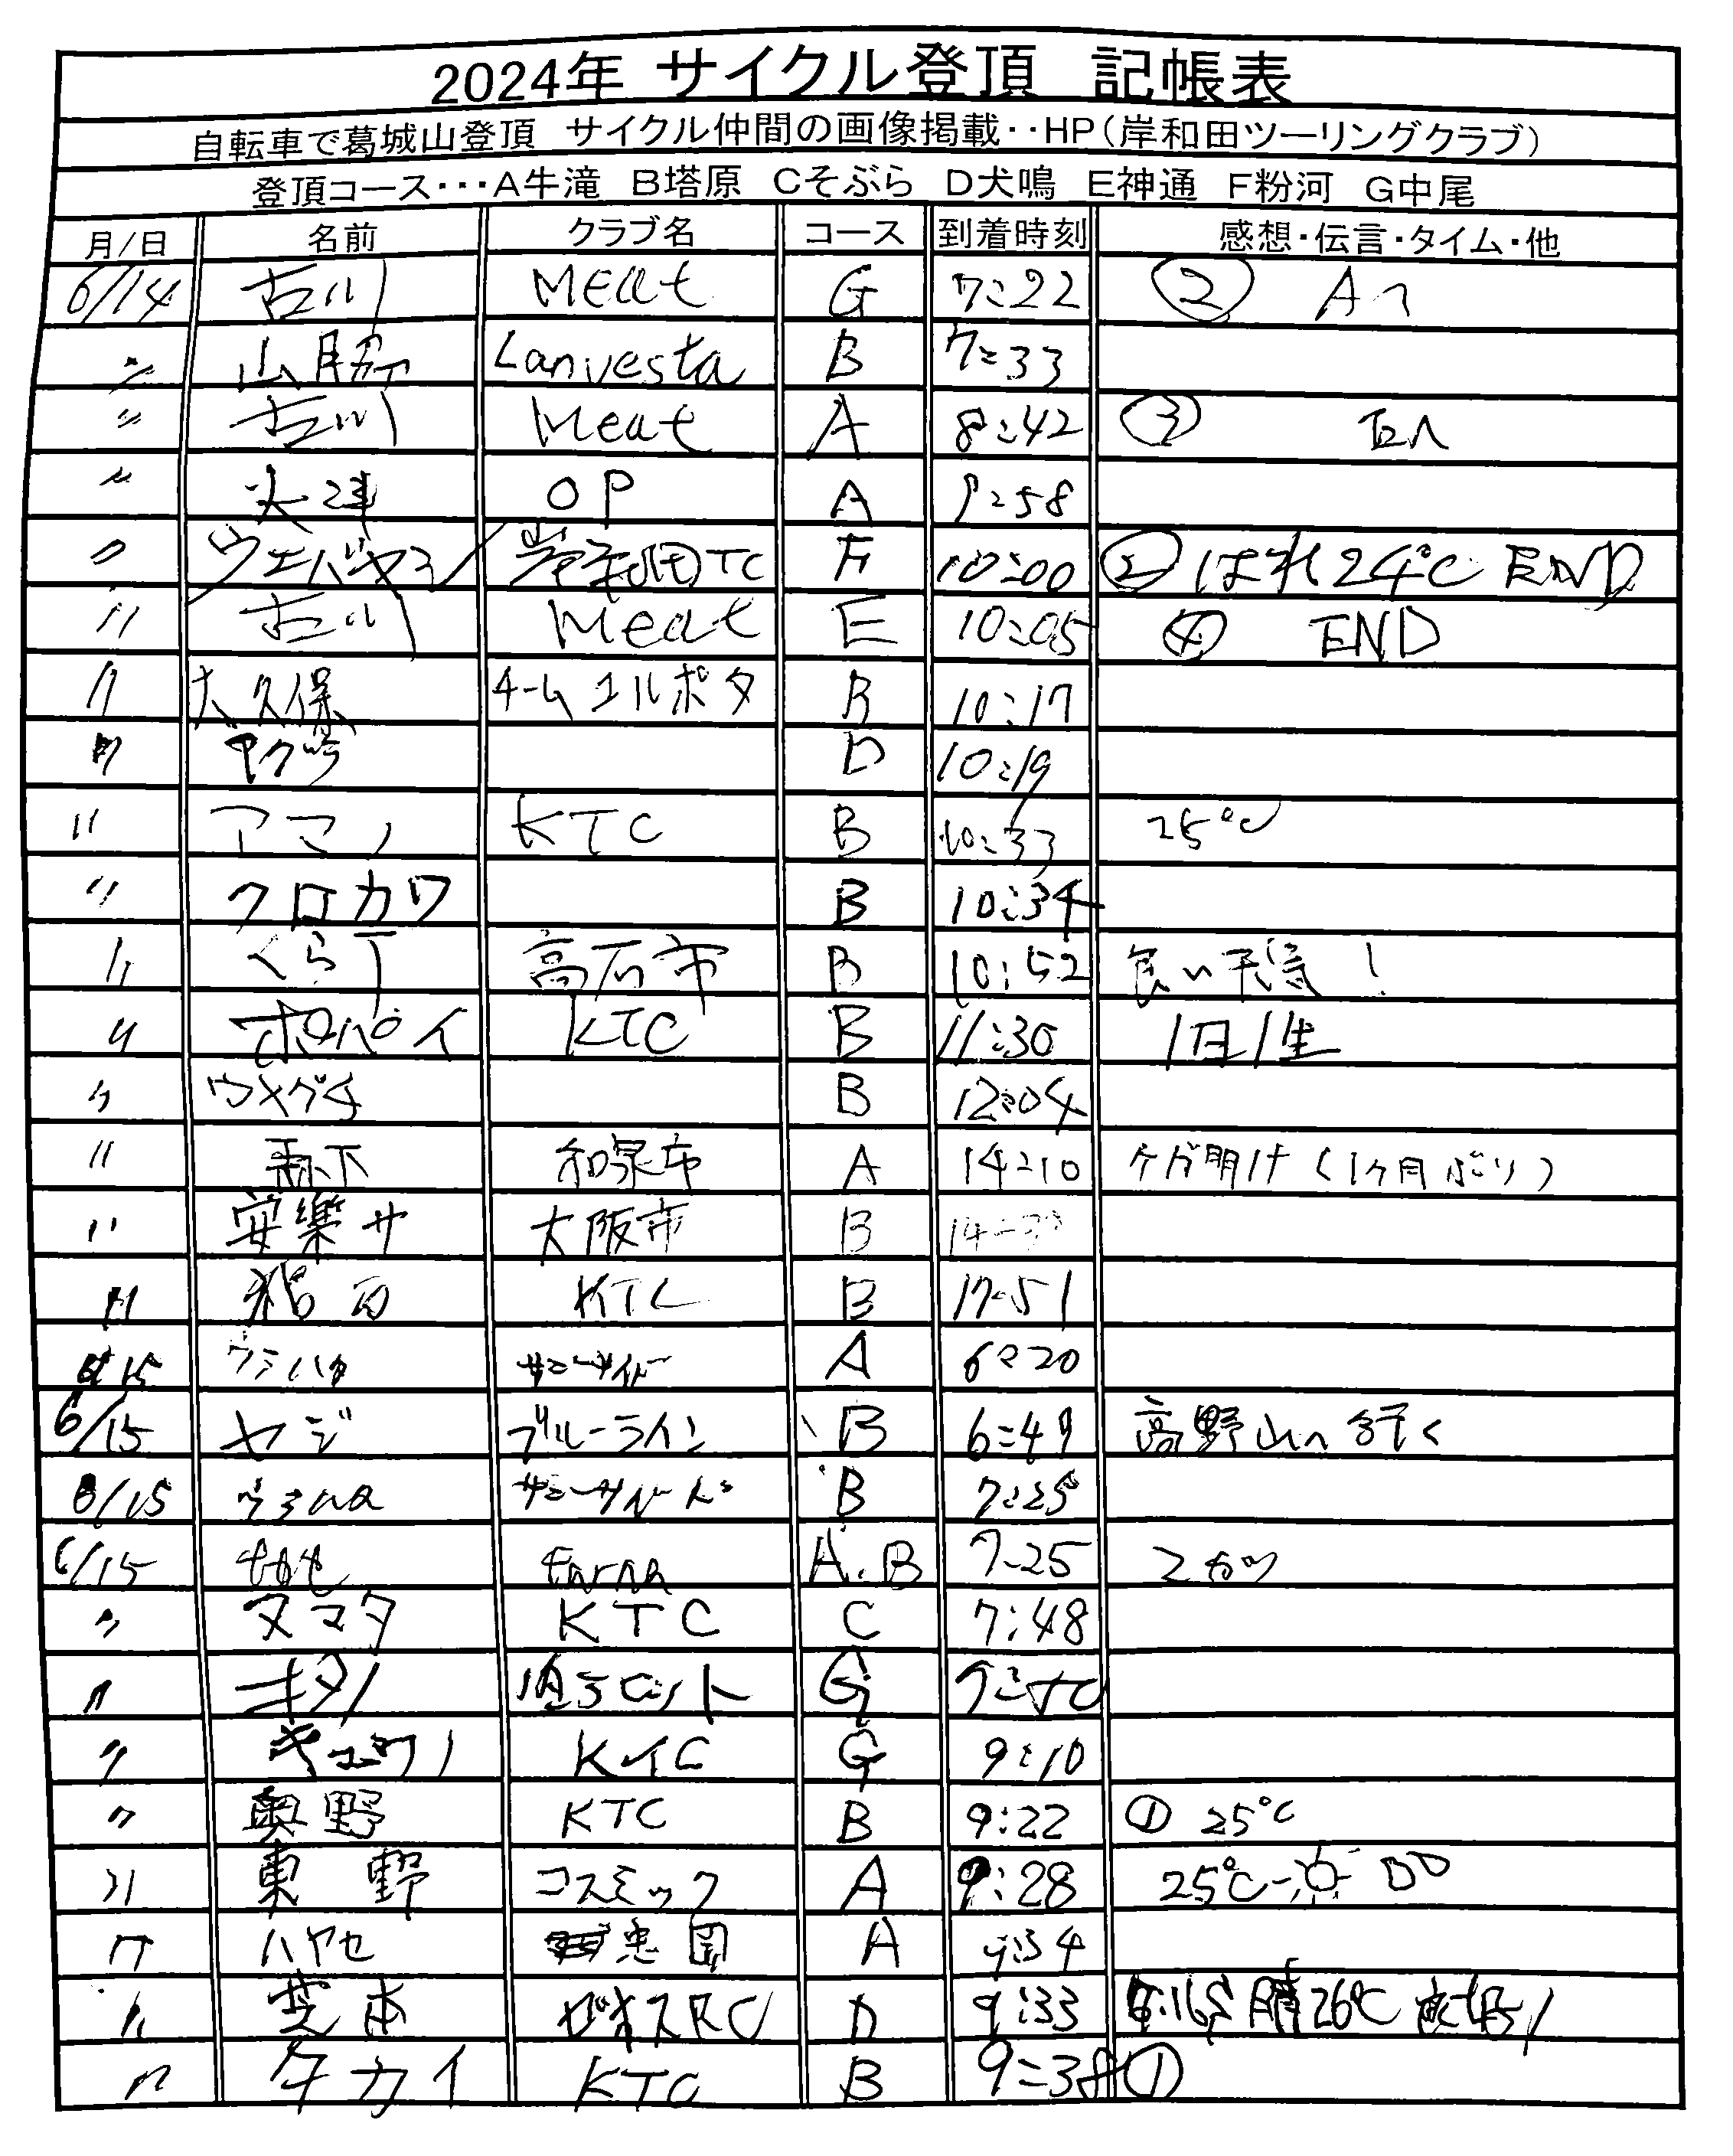 2024年 サイクル登頂 記帳表
自転車で葛城山登頂 サイクル仲間の画像掲載‥HP(岸和田ツーリングクラブ)
登頂コース･･･A牛滝 B塔原 Cそぶら D犬鳴 E神通 F粉河 G中尾
月/日 名前 クラブ名 コース 到着時刻 感想・伝言・タイム・他
6/14 古川 MEat G 7:22 ② Aへ
〃 山脇 Lanvesta B 7:33
〃 古川 Meat A 8:42 ③ Eへ
〃 OP A 9:58
〃 岸和田TC F 10:00 ② はれ 24℃ END
〃 古川 Meat E 10:05 ④ END
〃 大久保 チームエルポタ B 10:17
〃 D 10:19
〃 アマノ KTC B 10:33 25℃
〃 クロカワ B 10:34
〃 くらT 高石市 B 10:52 良い天気!
〃 ポパイ KTC B 11:30 1日1生
〃 ウメグチ B 12:04
〃 森下 和泉市 A 14:10 ケガ明け(1ヶ月ぶり)
〃 安樂サ 大阪市 B
〃 KTC B 17:51
6/15 A 6:20
6/15 ヤジ ブルーライン B 6:49 高野山へ行く
6/15 B 7:25
6/15 A.B 7:25
〃 ヌマタ KTC C 7:48
〃 キタノ G
〃 KTC G 9:10
〃 奥野 KTC B 9:22 ① 25℃
〃 東野 コスミック A 9:28 25℃
〃 ハヤセ A 9:34
〃 芝本 D 9:33 晴 26℃
〃 タカイ KTC B 9:38 ①